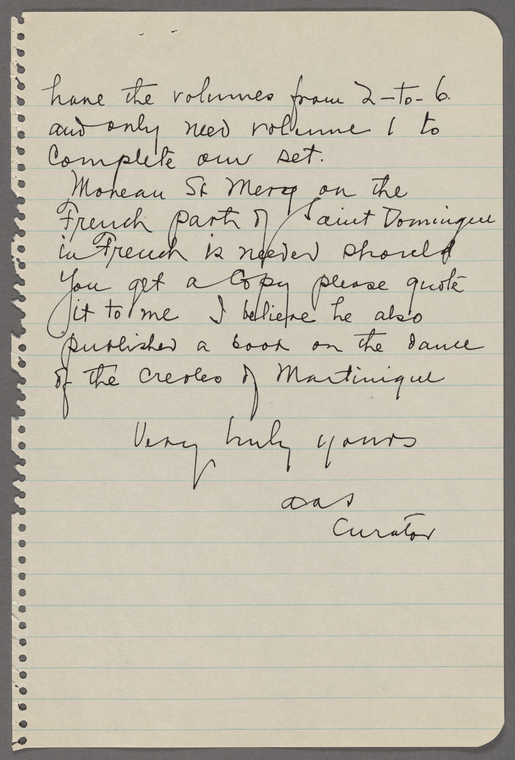 have the volumes from 2-to-6.
and only need volume 1 to
complete our set.
Moreau St Mery on the
French part of Saint Domingue
in French is needed should
you get a copy please quote
it to me I believe he also
published a book on the dance
of the creoles of Martinique
Very truly yours
aas
Curator